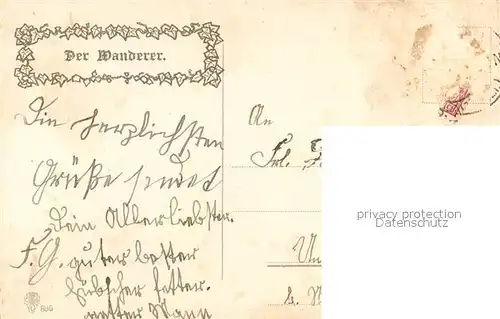 Der Wanderer.
Die herzlichsten
Grüße sendet
Dein Allerliebster.
F. G. guter bester
hübscher fetter.
netter Mann
BUG
An
Frl.
privacy protection
Datenschutz
b.